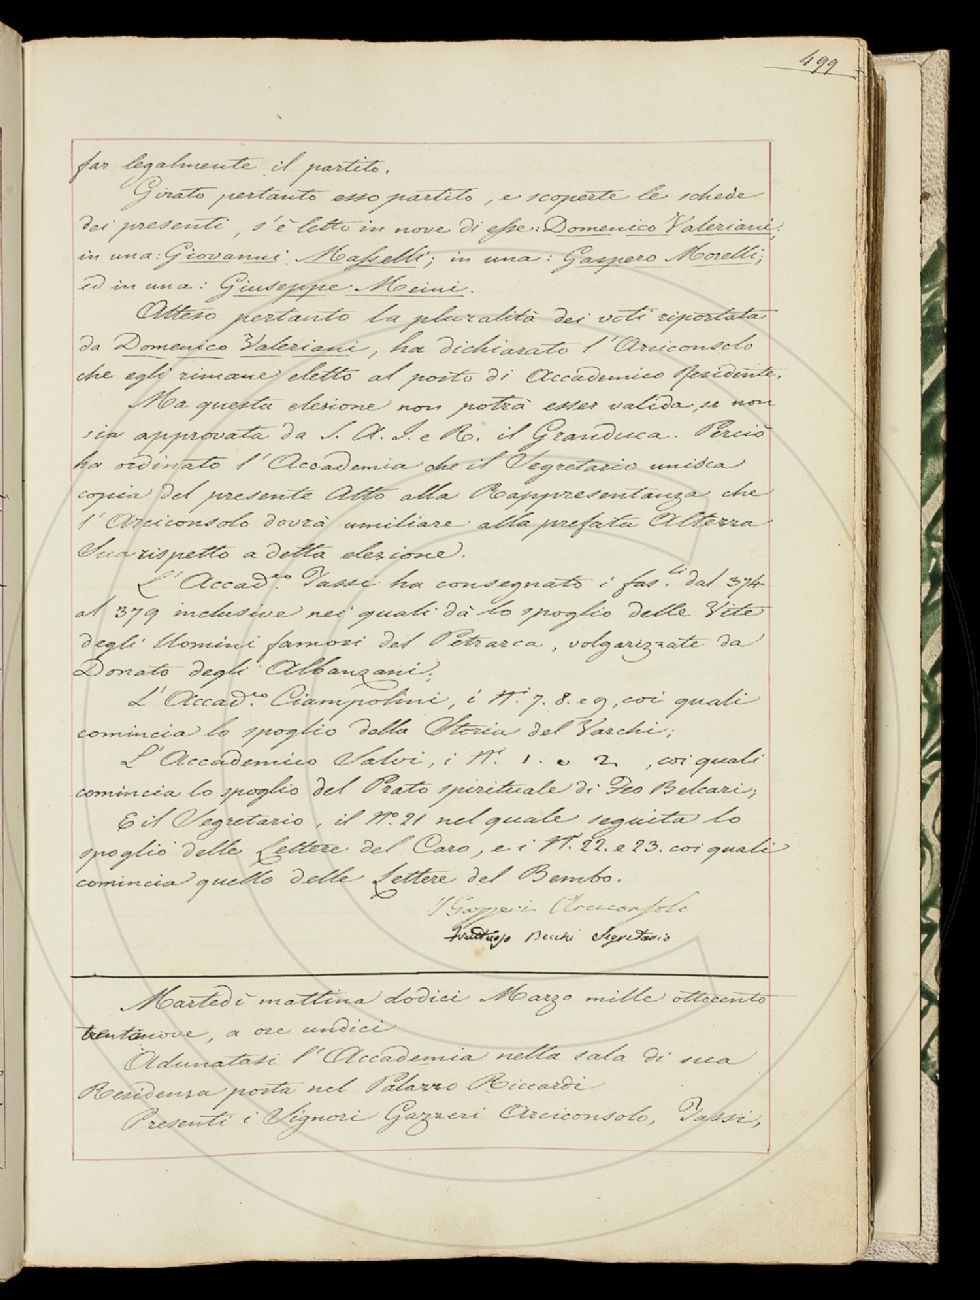 499
far legalmente il partito.
Girato pertanto esso partito, e scoperte le schede
dei presenti, s'è letto in nove di esse: Domenico Valeriani;
in una: Giovanni Masselli; in una: Gaspero Morelli;
ed in una: Giuseppe Meini.
Atteso pertanto la pluralità dei voti riportata
da Domenico Valeriani, ha dichiarato l'Arciconsolo
che egli rimane eletto al posto di Accademico Residente.
Ma questa elezione non potrà esser valida, se non
sia approvata da S. A. I. e R. il Granduca. Perciò
ha ordinato l'Accademia che il Segretario unisca
copia del presente Atto alla Rappresentanza che
l'Arciconsolo dovrà umiliare alla prefata Altezza
Sua rispetto a detta elezione.
L'Accad.co Tassi ha consegnato i fas.li dal 374
al 379 inclusive nei quali dà lo spoglio delle Vite
degli Uomini famosi del Petrarca, volgarizzate da
Donato degli Albanzani;
L'Accad.co Ciampolini, i N.i 7. 8. e 9, coi quali
comincia lo spoglio della Storia del Varchi;
L'Accademico Salvi, i N.i 1. e 2, coi quali
comincia lo spoglio del Prato spirituale di Feo Belcari;
E il Segretario, il N.o 21 nel quale seguita lo
spoglio delle Lettere del Caro, e i N.i 22. e 23. coi quali
comincia quello delle Lettere del Bembo.
Gazzeri Arciconsolo
Fruttuoso Becchi Segretario
Martedì mattina dodici Marzo mille ottocento
trentanove, a ore undici
Adunatasi l'Accademia nella sala di sua
Residenza posta nel Palazzo Riccardi
Presenti i Signori Gazzeri Arciconsolo, Tassi,